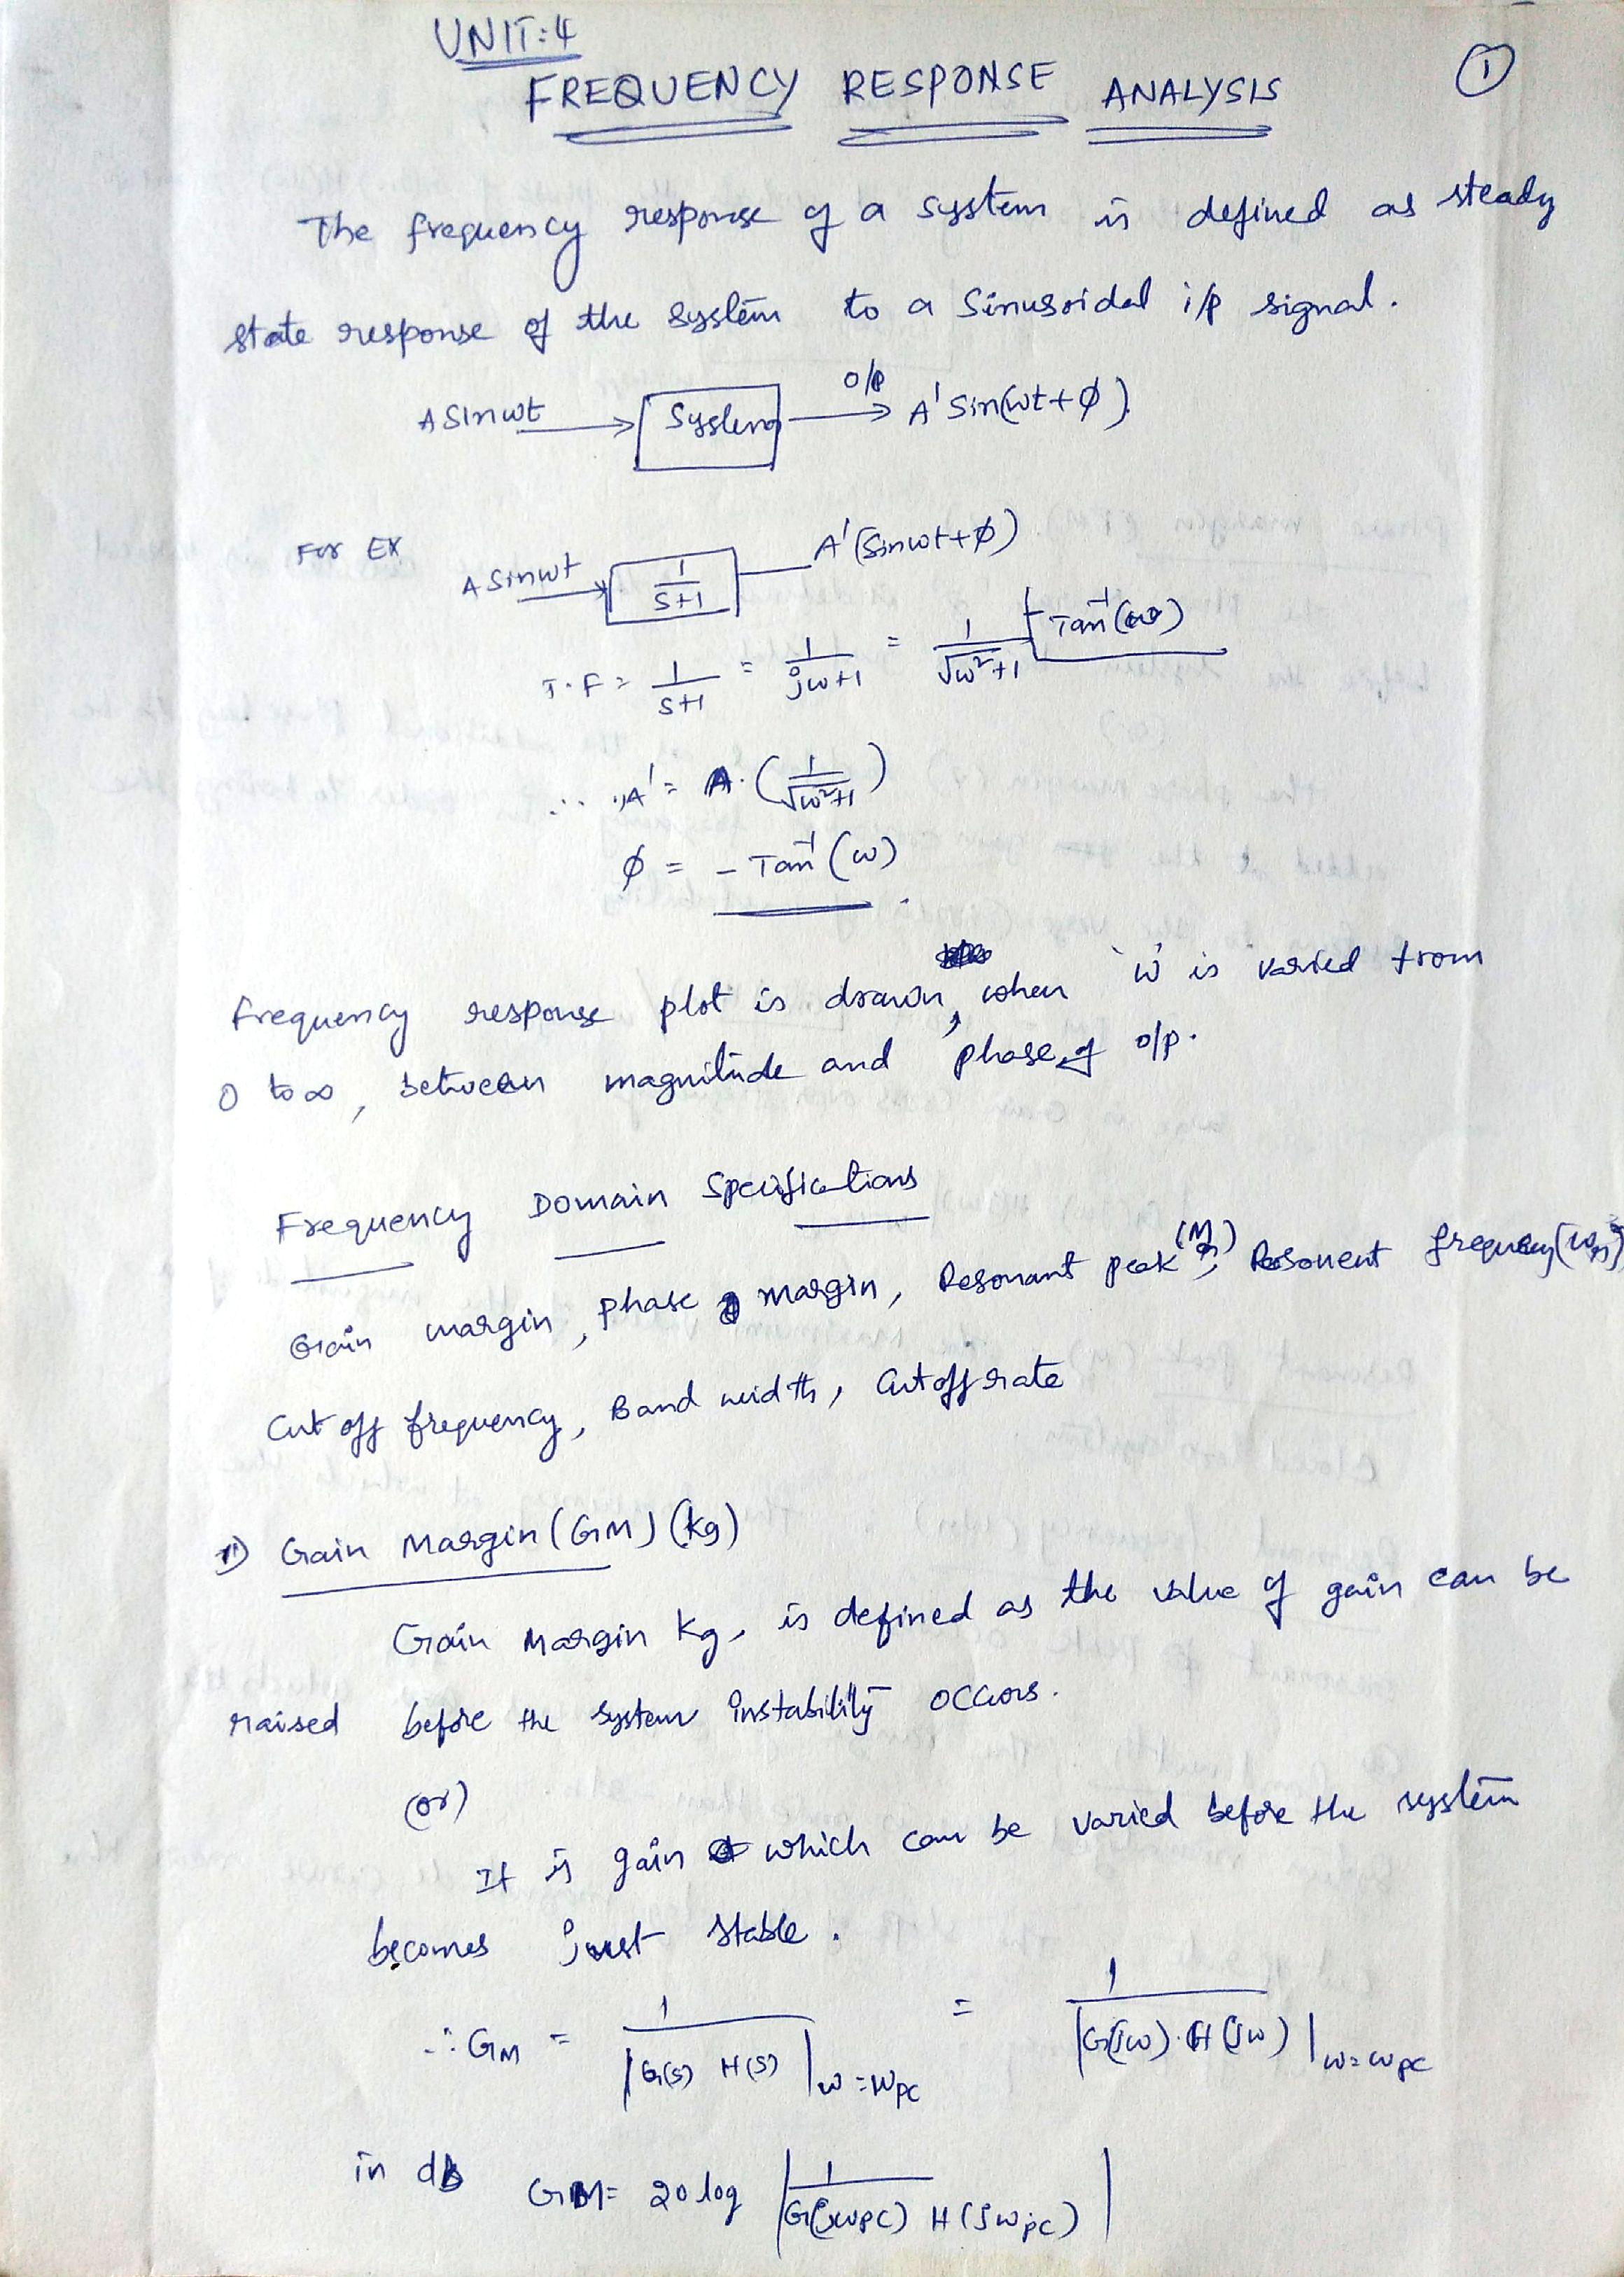 UNIT:4
FREQUENCY RESPONSE ANALYSIS ①
The frequency response of a system is defined as steady
state response of the system to a Sinusoidal i/p signal.
A Sinωt → System → o/p A' Sin(ωt+ϕ)
For EX
A Sinωt → 1/(S+1) A'(Sinωt+ϕ)
T.F = 1/(S+1) = 1/(jω+1) = 1/√(ω²+1) ∠Tan⁻¹(ω)
∴ A' = A·(1/√(ω²+1))
ϕ = -Tan⁻¹(ω)
frequency response plot is drawn, when 'ω' is varied from
0 to ∞, between magnitude and phase of o/p.
Frequency Domain Specifications
Gain margin, phase margin, Resonant peak (Mr), Resonent frequency (ωr)
Cut off frequency, Band width, Cutoff rate
1) Gain Margin (GM) (kg)
Gain Margin Kg, is defined as the value of gain can be
raised before the system instability occurs.
(or)
It is gain which can be varied before the system
becomes just stable.
∴ GM = 1/|G(s) H(s)|ω=ωpc = 1/|G(jω)·H(jω)|ω=ωpc
in db GM = 20 log |1/G(jωpc) H(jωpc)|